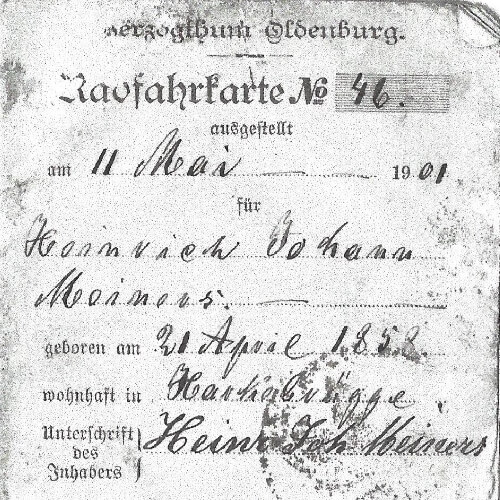 Herzogthum Oldenburg.
Radfahrkarte № 46.
ausgestellt
am 11 Mai 1901
für
Heinrich Johann
Meiners.
geboren am 21 April 1858.
wohnhaft in Harkebrügge
Unterschrift des Inhabers } Heinr Joh Meiners